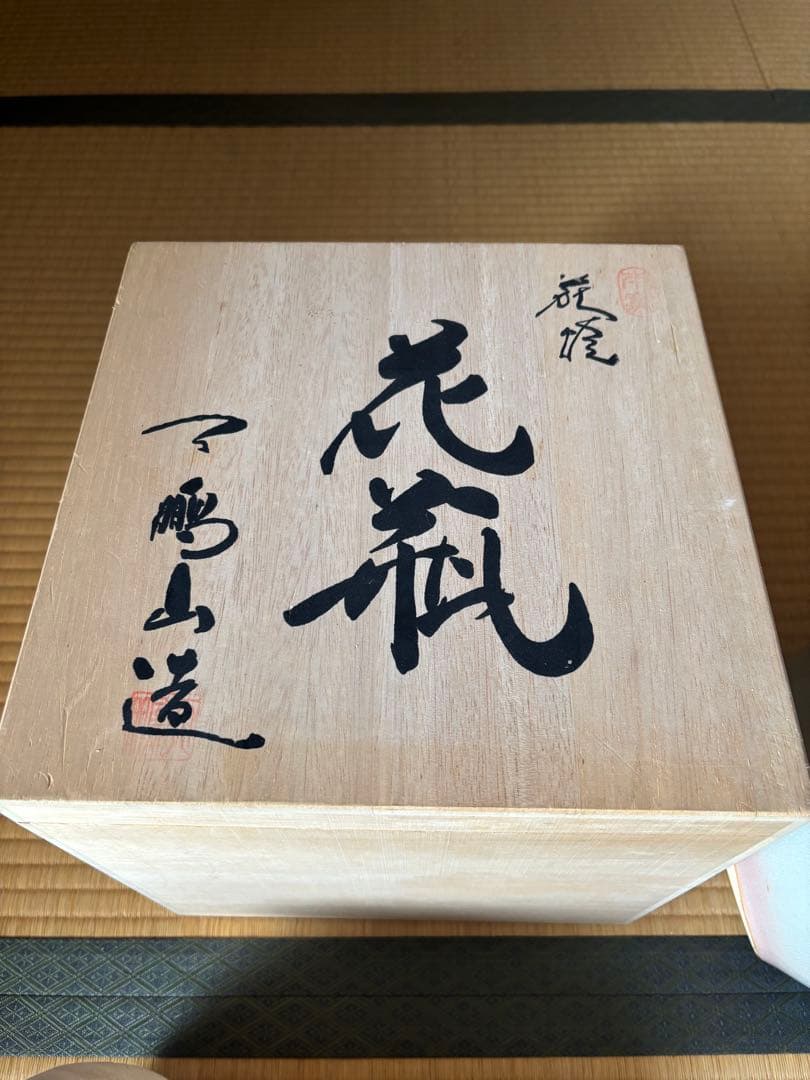 萩焼
花瓶
天鵬山造